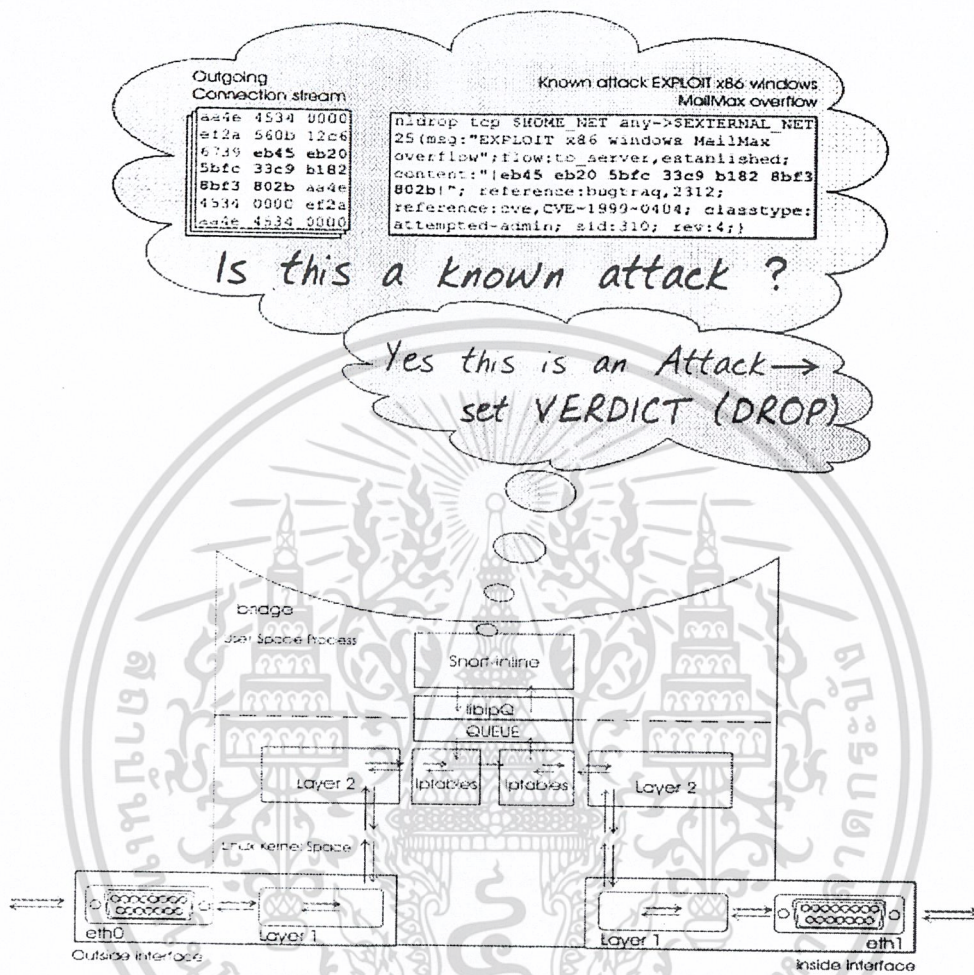 Outgoing
Connection stream
aa4e 4534 0000
ef2a 560b 12c6
6739 eb45 eb20
5bfc 33c9 b182
8bf3 802b aa4e
4534 0000 ef2a
aa4e 4534 0000
Known attack EXPLOIT x86 windows
MailMax overflow
tcp $HOME_NET any->$EXTERNAL_NET
25(msg:"EXPLOIT x86 windows MailMax
overflow";flow:to_server,established;
content:"|eb45 eb20 5bfc 33c9 b182 8bf3
802b|"; reference:bugtraq,2312;
reference:cve,CVE-1999-0404; classtype:
attempted-admin; sid:310; rev:4;)
Is this a known attack ?
Yes this is an Attack→
set VERDICT (DROP)
bridge
User Space Process
Snort-inline
libipQ
QUEUE
Layer 2
Iptables
Iptables
Layer 2
Linux Kernel Space
eth0
Layer 1
Layer 1
eth1
Outside Interface
Inside Interface